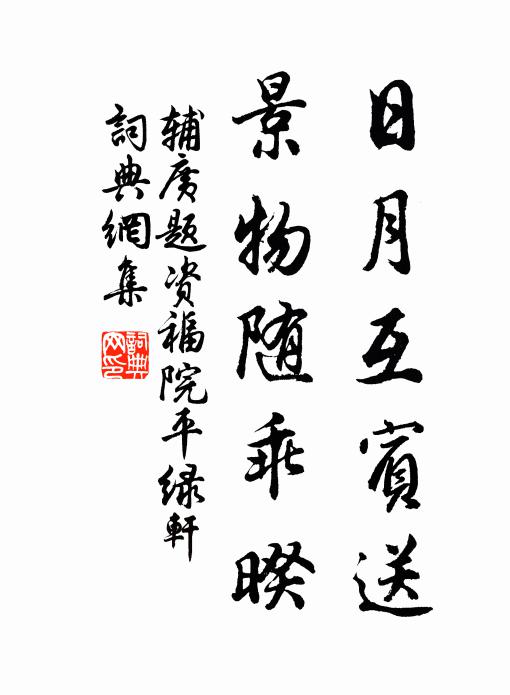 日月互賓送
景物随乖暌
辅廣题资福院平绿軒
詞典網集
詞典網印